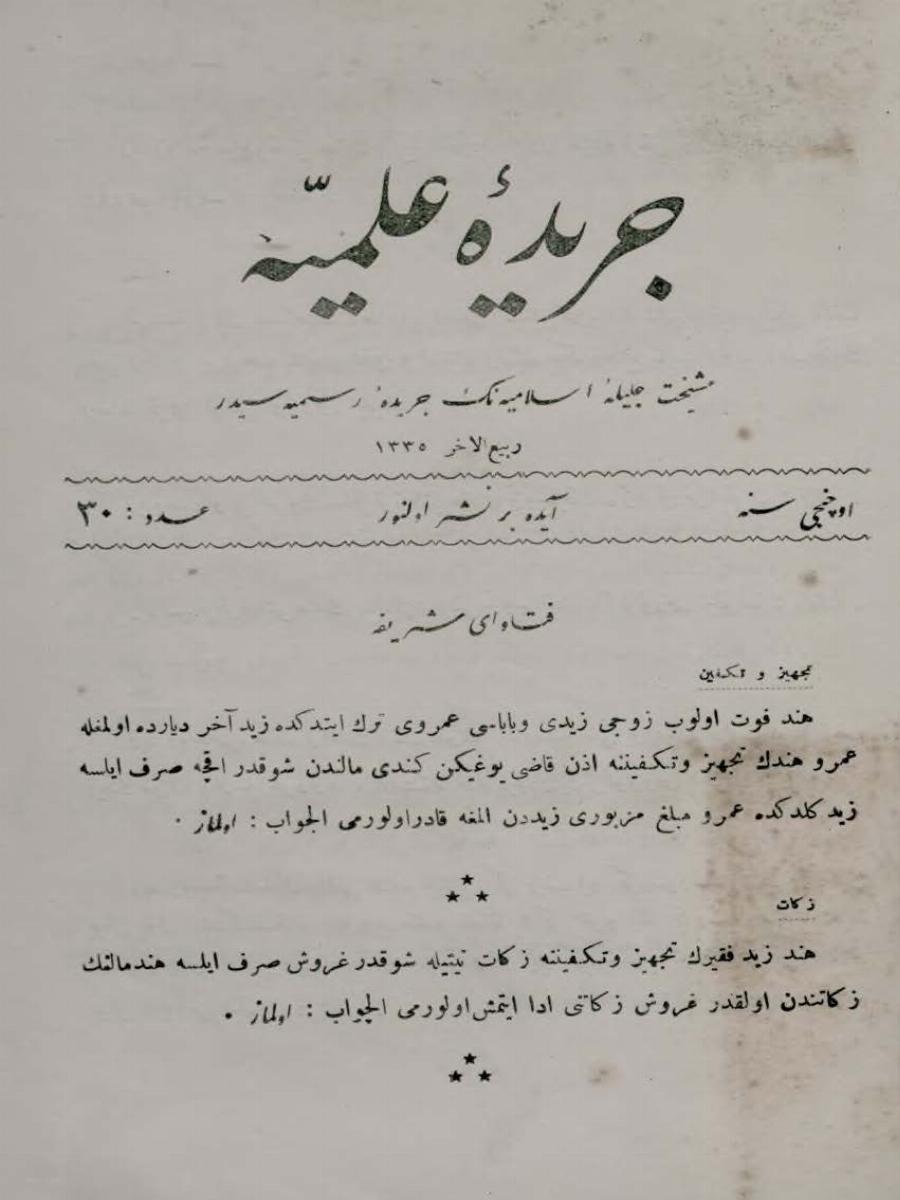 جريدۀ علميّه
مشيخت جليلۀ اسلاميه‌نك جريدۀ رسميه‌سيدر
ربيع الاخر ١٣٣٥
اوچنجى سنه
آيده بر نشر اولنور
عدد : ٣٠
فتاواى شريفه
تجهيز و تكفين
هند فوت اولوب زوجى زيدى وباباسى عمروى ترك ايتدكده زيد آخر ديارده اولمغله
عمرو هندك تجهيز وتكفيننه اذن قاضى يوغيكن كندى مالندن شوقدر اقچه صرف ايلسه
زيد كلدكده عمرو مبلغ مزبورى زيددن المغه قادر اولورمى الجواب : اولماز .
زكات
هند زيد فقيرك تجهيز وتكفيننه زكات نيتيله شوقدر غروش صرف ايلسه هند مالنك
زكاتندن اولقدر غروش زكاتنى ادا ايتمش اولورمى الجواب : اولماز .